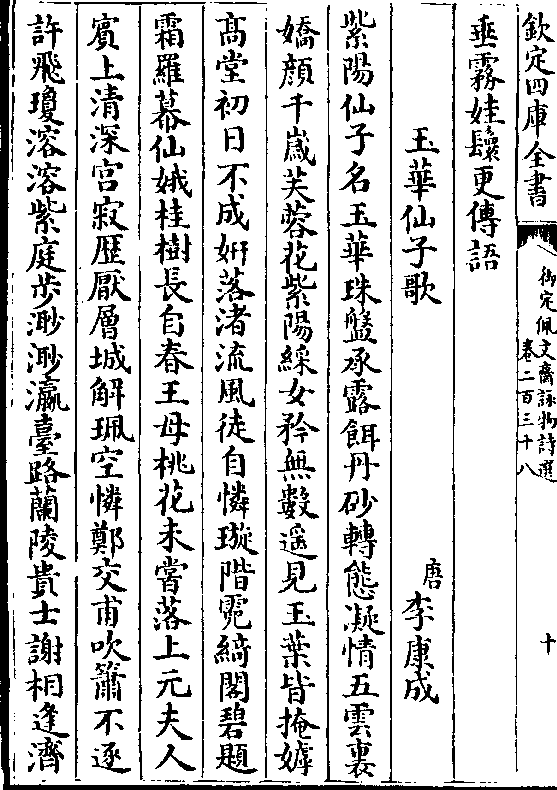 欽定四庫全書
御定佩文齋詠物詩選
卷二百三十八
十
垂霧娃鬟更傳語
玉華仙子歌
唐 李康成
紫陽仙子名玉華珠盤承露餌丹砂轉態凝情五雲裏
嬌顔千嵗芙蓉花紫陽綵女矜無數遥見玉葉皆掩嫭
髙堂初日不成妍落渚流風徒自憐璇階霓綺閣碧題
霜羅幕仙娥桂樹長自春王母桃花未嘗落上元夫人
賓上清深宫寂歴厭層城解珮空憐鄭交甫吹簫不逐
許飛瓊溶溶紫庭步渺渺瀛臺路蘭陵貴士謝相逢濟